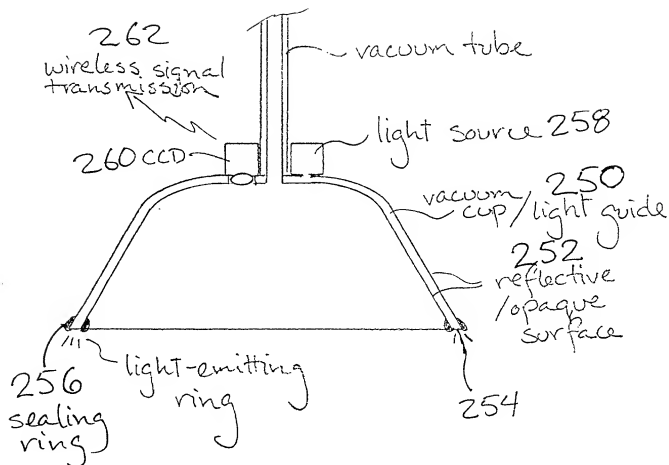 262
wireless signal
transmission
vacuum tube
260 CCD
light source 258
vacuum 250
cup/light guide
252
reflective
/opaque
surface
256
sealing
ring
light-emitting
ring
254